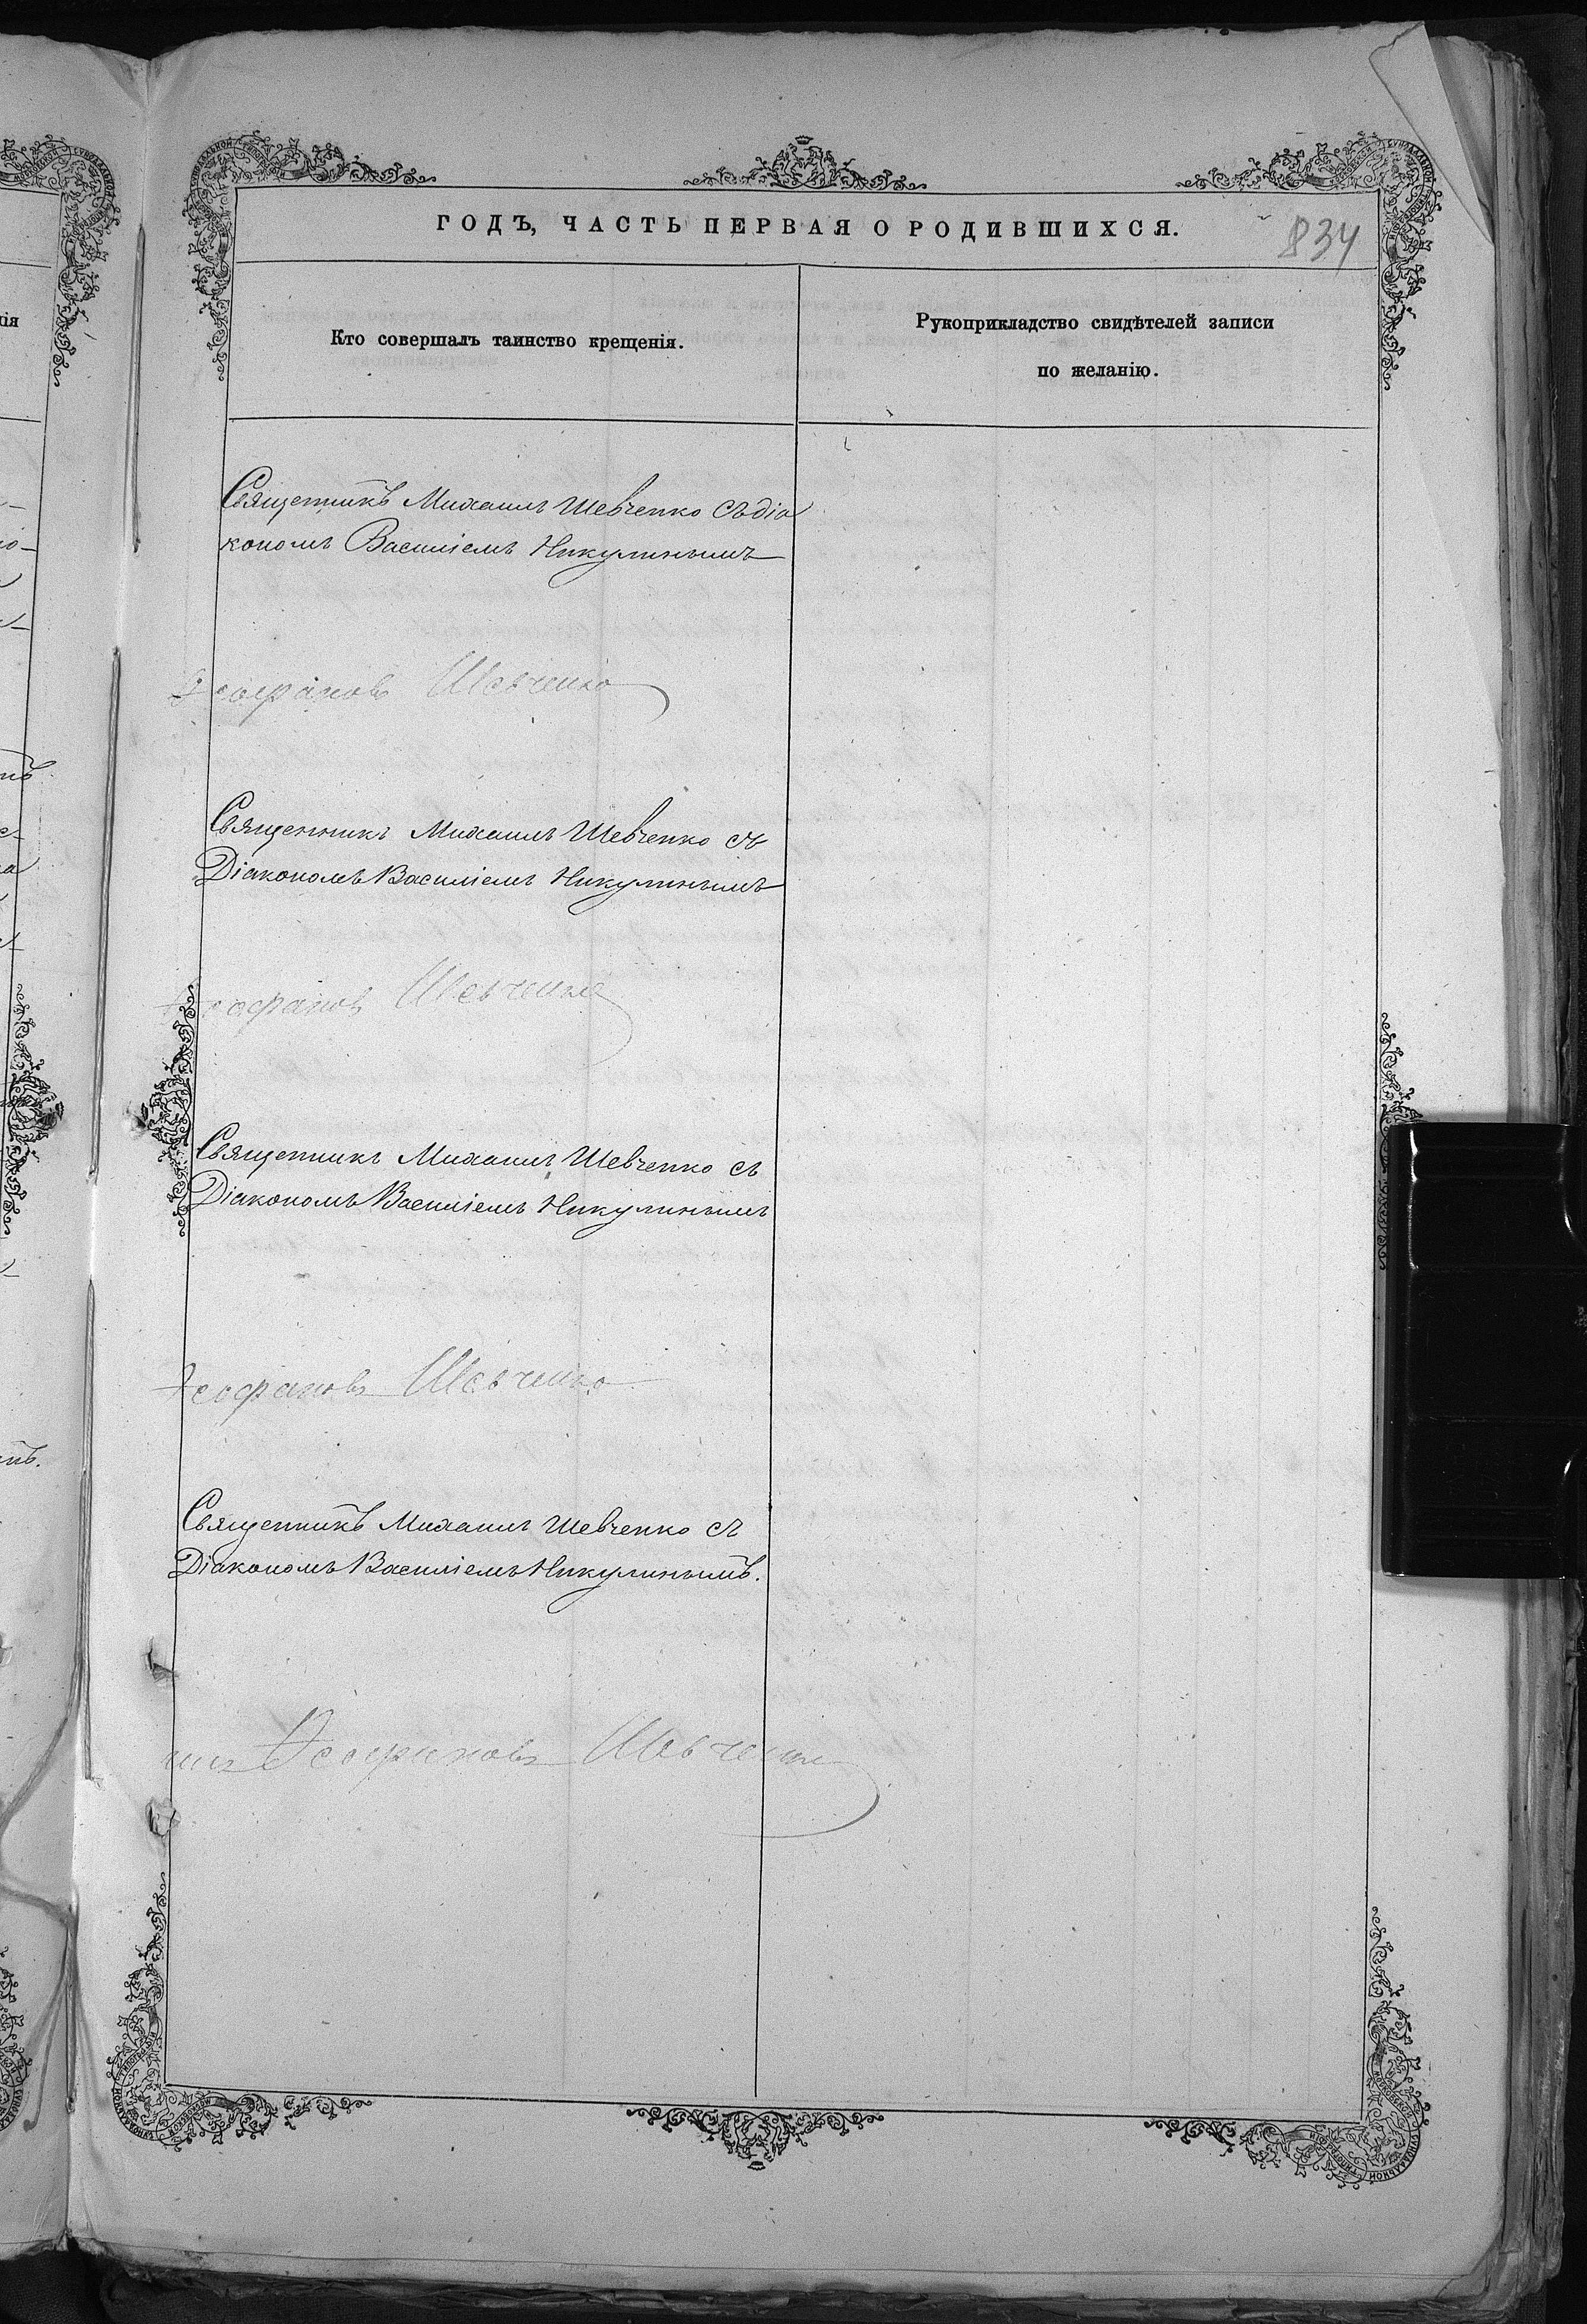 ГОДЪ, ЧАСТЬ ПЕРВАЯ О РОДИВШИХСЯ.
834
Кто совершалъ таинство крещенія.
Рукоприкладство свидѣтелей записи
по желанію.
Священникъ Михаилъ Шевченко съ діа
кономъ Василіемъ Никулинымъ
Ѳеофановъ Шевченко
Священникъ Михаилъ Шевченко съ
Діакономъ Василіемъ Никулинымъ
Ѳеофановъ Шевченко
Священникъ Михаилъ Шевченко съ
Діакономъ Василіемъ Никулинымъ
Ѳеофановъ Шевченко
Священникъ Михаилъ Шевченко съ
Діакономъ Василіемъ Никулинымъ.
Ѳеофановъ Шевченко